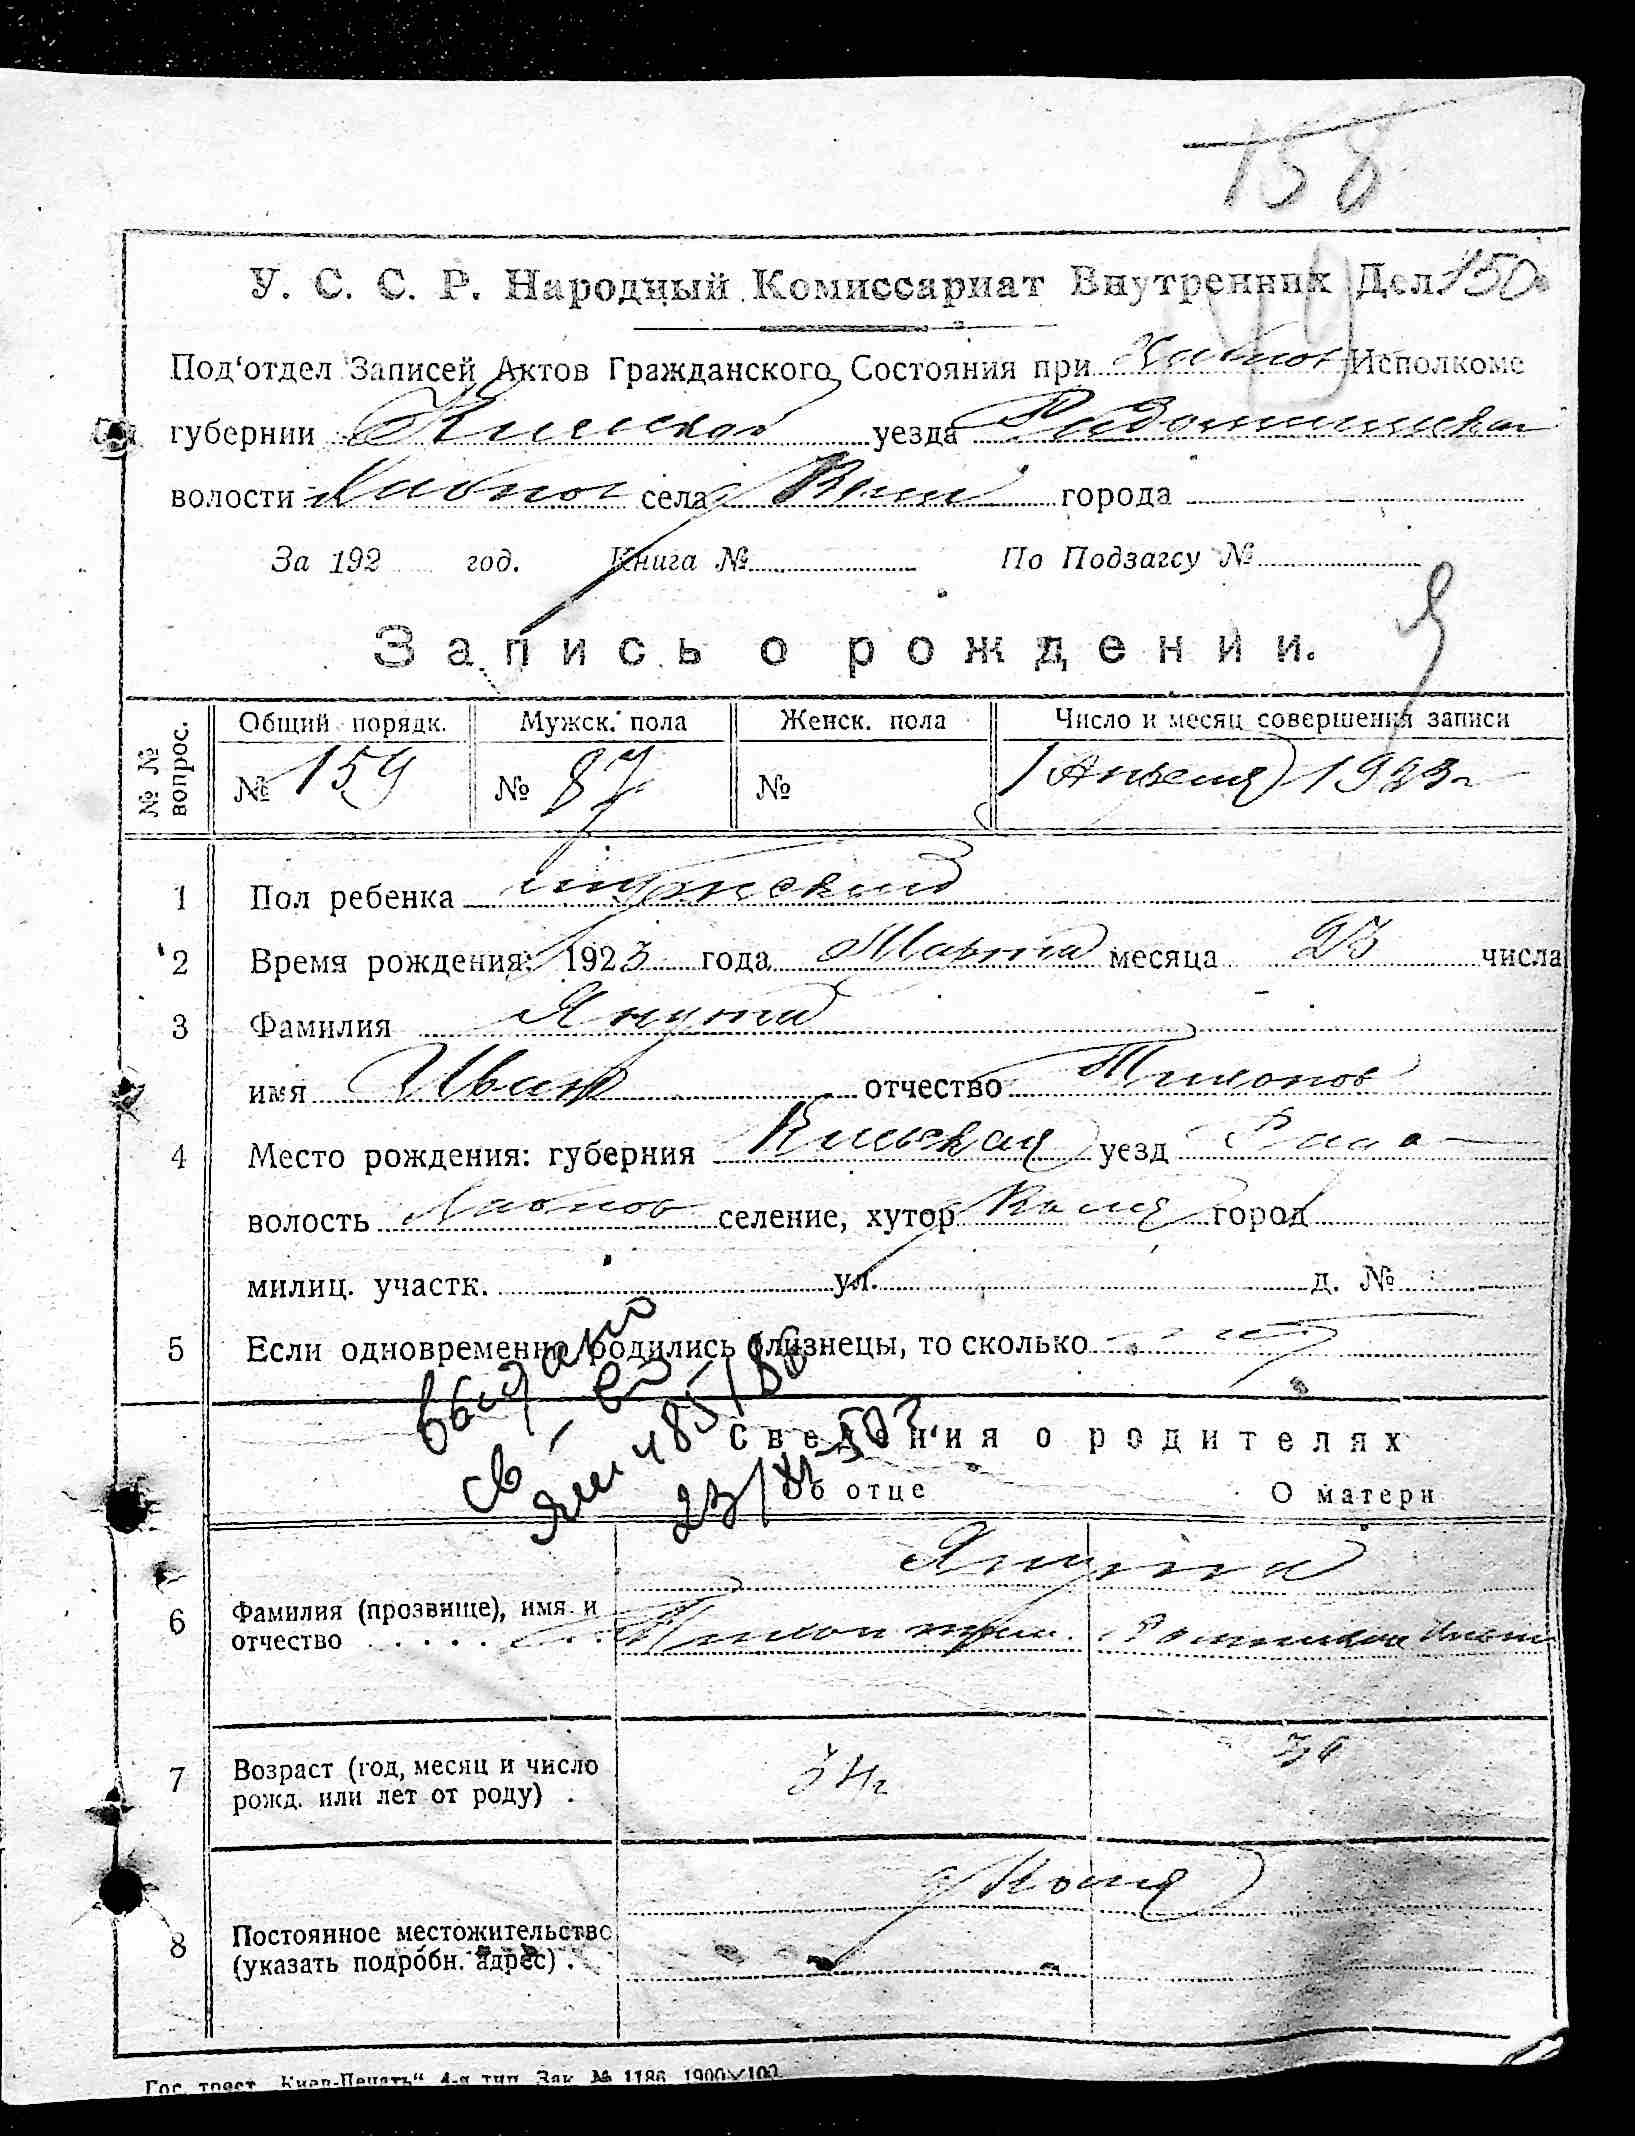 158
У. С. С. Р. Народный Комиссариат Внутренних Дел. 150
Под‘отдел Записей Актов Гражданского Состояния при Хабнов Исполкоме
губернии Киевской уезда
волости Хабнов села города
За 192 год. Книга № По Подзагсу №
Запись о рождении.
№ № вопрос. Общий порядк. Мужск. пола Женск. пола Число и месяц совершения записи
№ 159 № 87 № 1 Апреля 1923 г
1 Пол ребенка мужской
2 Время рождения: 1923 года Марта месяца 23 числа
3 Фамилия Янута
имя Иван отчество Тихонов
4 Место рождения: губерния Киевская уезд
волость Хабнов селение, хутор город
милиц. участк. ул. д. №
5 Если одновременно родились близнецы, то сколько
выдано
св-во
Сведения о родителях
Об отце О матери
Янута
6 Фамилия (прозвище), имя и
отчество . . . . . Тихон
7 Возраст (год, месяц и число
рожд. или лет от роду) . 34 г
8 Постоянное местожительство
(указать подробн. адрес) .
Гос. трест „Киев-Печать“ 4-я тип. Зак. № 1186 1900×100